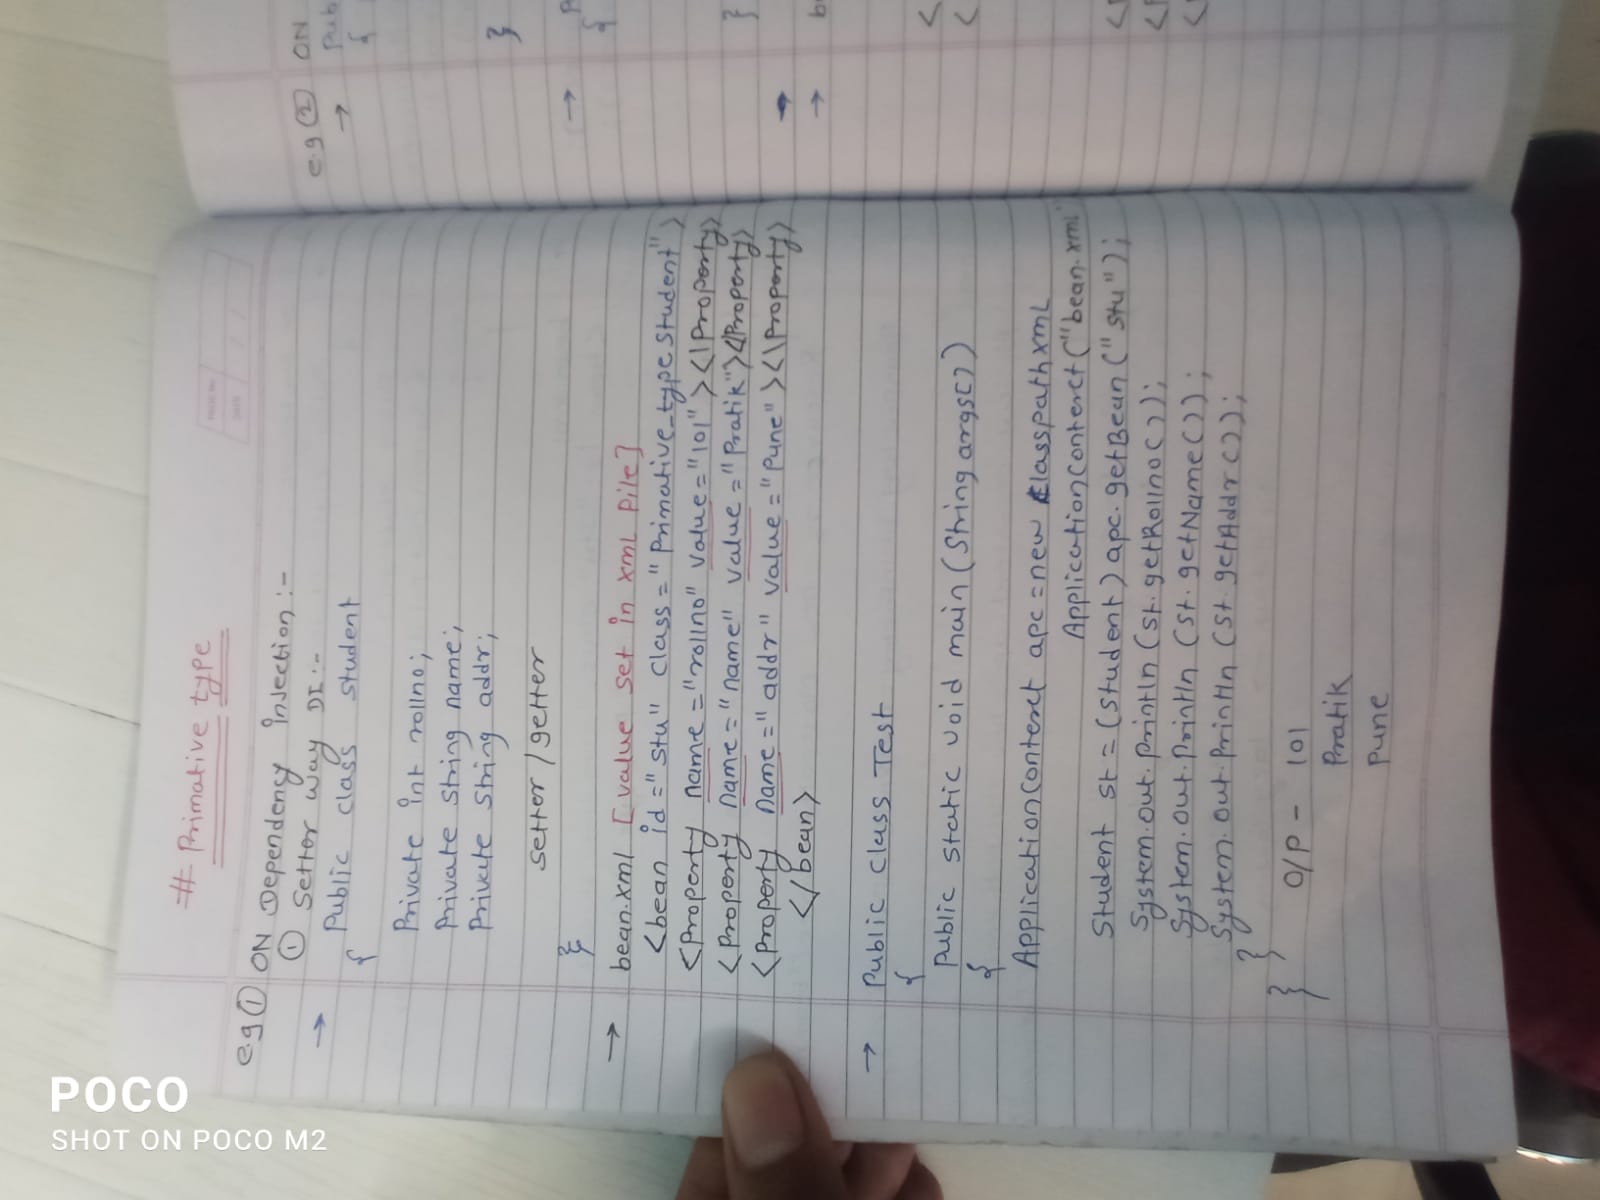 # Primative type
e.g ① ON Dependency Injection :-
① Settor way DI :-
→ Public class student
{
Private int rollno;
Private String name;
Private String addr;
settor / getter
}
→ bean.xml [value set in xml File]
<bean id="stu" class="Primative_type student">
<Property name="rollno" value="101"><\Property>
<Property name="name" value="Pratik"><\Property>
<Property name="addr" value="Pune"><\Property>
</bean>
→ Public class Test
{
Public static void main(String args[])
{
ApplicationContext apc = new Classpathxml
ApplicationContext("bean.xml"
Student st = (Student) apc.getBean("stu");
System.out.println(st.getRollno());
System.out.println(st.getName());
System.out.println(st.getAddr());
}
}
O/P - 101
Pratik
Pune
e.g ② ON
→ Pub
{
}
→ P
{
}
→
→ b
<
<
<
<
<
POCO
SHOT ON POCO M2